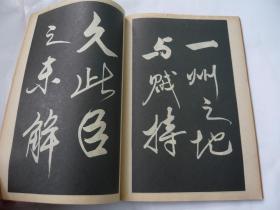 一州之地
与贼持
久此臣
之未解